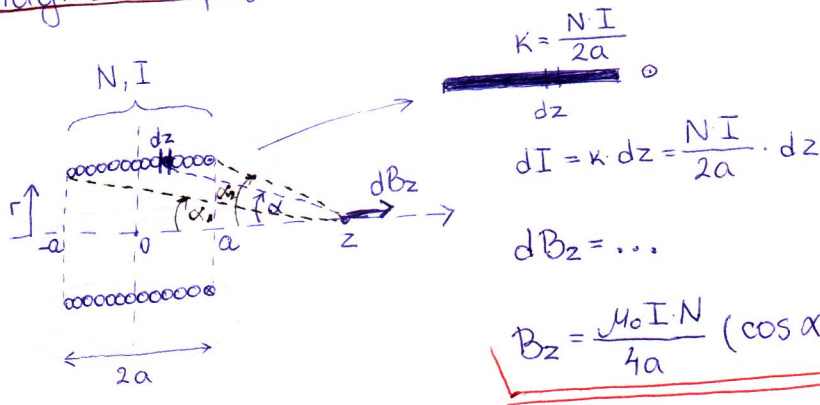 N, I
dz
r
-a
0
a
α₁
α₂
α
z
dBz
2a
K = N·I / 2a
dz
dI = K·dz = N·I / 2a · dz
dBz = ...
Bz = μ₀I·N / 4a (cos α